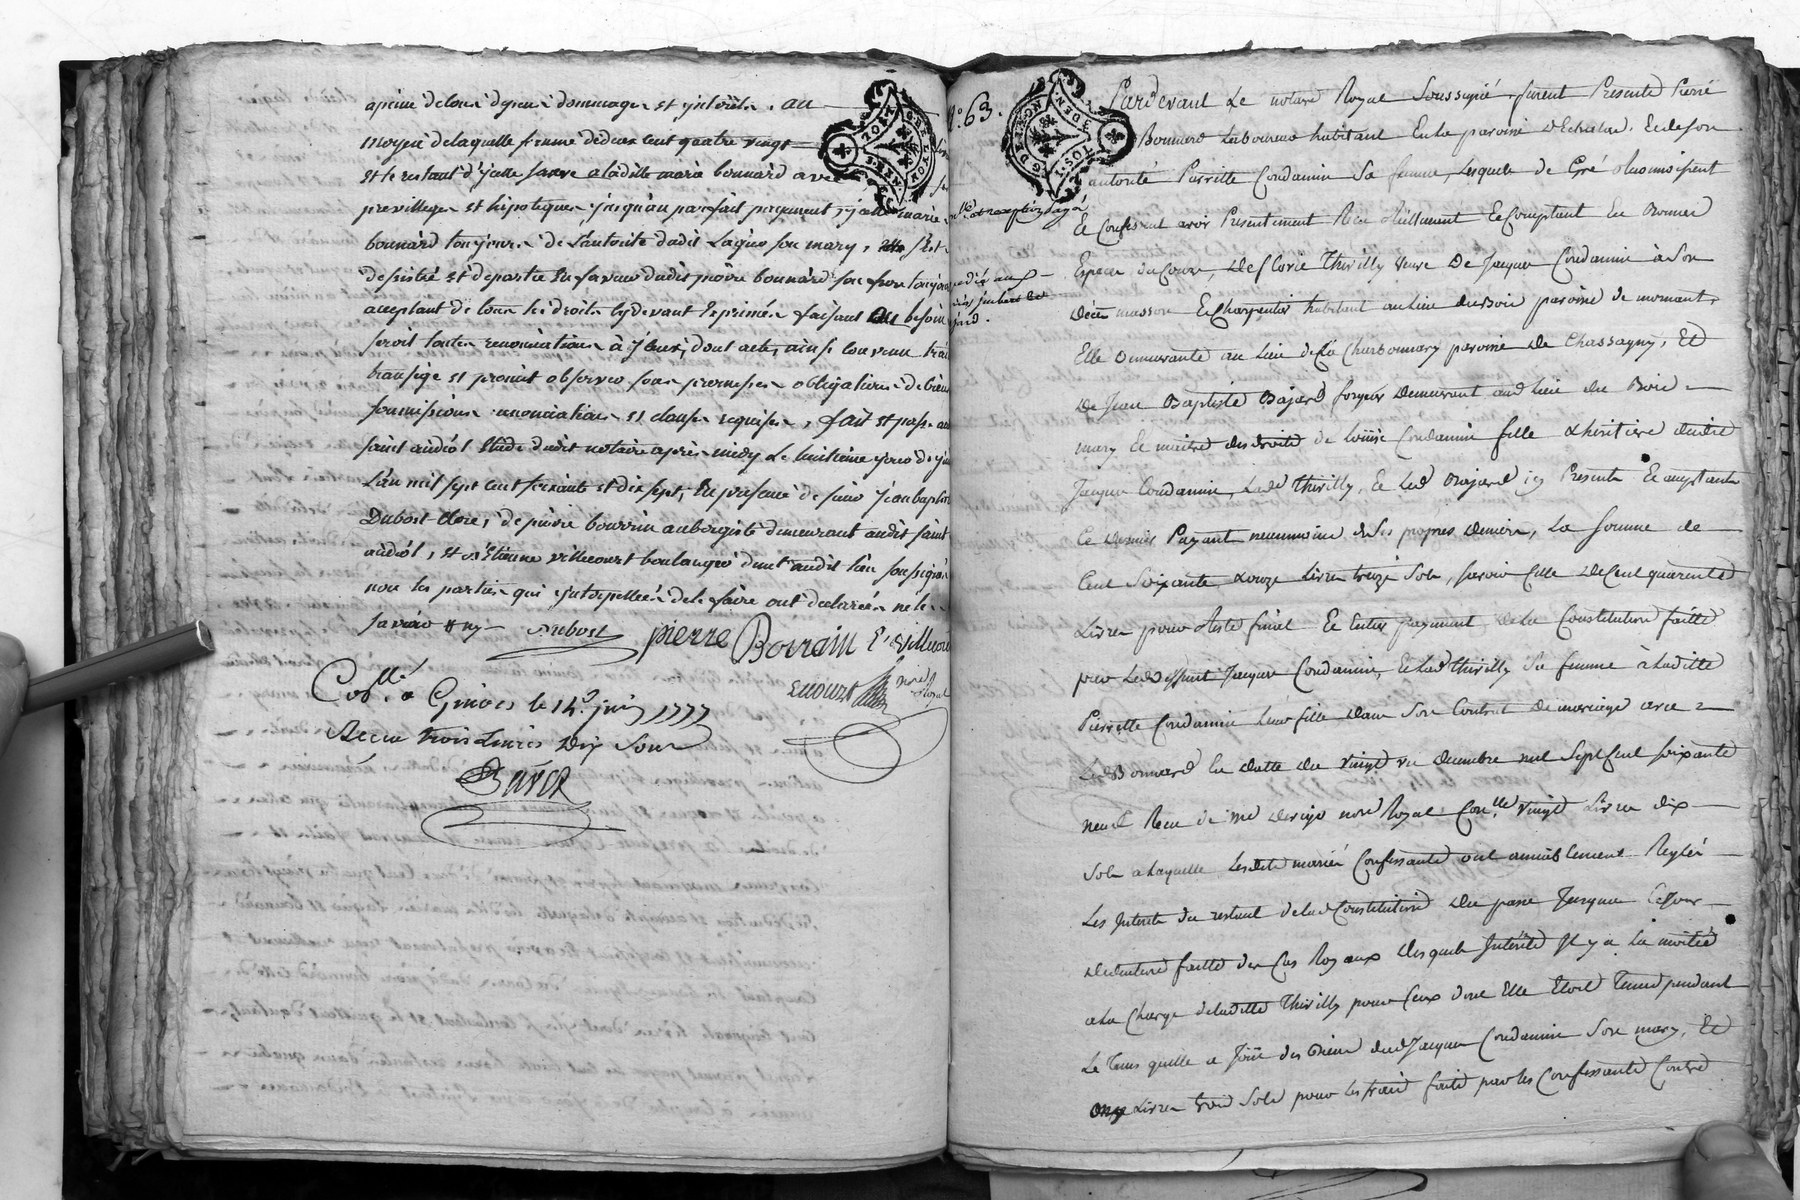 apeine de tous depens dommages et interets. au
moyen de laquelle somme de deux cent quatre vingt
et le restant d'ycelle sauve a laditte marie bonnard avec
previlleges et hipoteques jusqu'au parfait payement, ycelle marie
bonnard toujours de l'autorité dudit Laguo son mary, s'est
desistée et departie en faveur dudit pierre bonnard son frere toujours
acceptant de tous les droits cy devant exprimés faisant besoin
seroit toutes renonciations à yceux, dont acte, ainsi convenu
transigé et promit observer sous promesses obligations de biens
soumissions renonciations et clauses requises, fait et passé au
saint andéol etude dudit notaire après midy Le huitieme jour de juin
L'an mil sept cent soixante et dix sept, En presence de sieur jean baptiste
Dubost clerc, de pierre bourrin aubergiste demeurant audit saint
andéol, et d'étienne villecourt boulanger dem.t audit lieu soussignés
non les parties qui jnterpellées de le faire ont declarées ne le
savoir
Dubost pierre Bourain E. Villecou
Con.llé a Givors le 14e. juin 1777
Recu trois Livres Dix Sous
N.o 63.
Pardevant Le notaire Royal Soussigné, furent Presents Pierre
Bonnard Laboureur habitant En la paroisse D'Echalas, Et de son
autorité Pierrette Condamin Sa femme, Lesquels de Gré ont
Et Confessent avoir Presentement Recu Réellement Et Comptant En Bonnes
Especes du Cours, de Thivilly veuve De Jacques Condamin à Son
décès masson Et Charpentier habitant au lieu du Bois paroisse de mornant,
Elle Demeurante au Lieu de La Charbonnary paroisse de Chassagny, Et
de Jean Baptiste Bajard demeurant aud. lieu du Bois
mary Et maitre des droits de Louise Condamin fille & héritiere dudit
Jacques Condamin, Lad. Thivilly, Et Led. Bajard icy Presents Et acceptants
Ce dernier Payant neanmoins de Ses propres deniers, La Somme de
Cent Soixante & onze Livres treize Sols, Savoir Celle de Cent quarente
Livres pour Reste final Et Entier payement de la Constitution faitte
par Led. deffunt Jacques Condamin, Et Lad. Thivilly Sa femme à Laditte
Pierrette Condamin Leur fille dans Son Contrat de mariage avec
Led. Bonnard En datte du vingt un decembre mil Sept Cent Soixante
neuf Recu de me not.re Royal Con.llé vingt Livres dix
Sols a Laquelle Lesdits mariés Confessants ont amiablement Reglés
Les Interets du restant de lad. Constitution du passé Jusques Ce Jour
deduction faitte des Cas Royaux desquels Intérêts Il y a la moitié
a La Charge de laditte Thivilly pour Ceux dont Elle Etoit Tenue pendant
Le Tems quelle a Joüi des Biens dud. Jacques Condamin Son mary, Et
onze Livres trois Sols pour les frais faits par les Confessants Contre